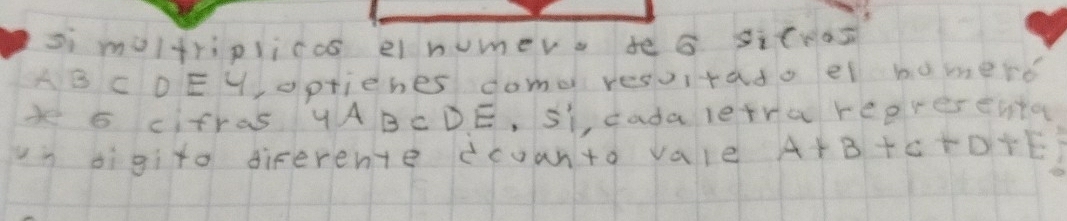 si moltriplicas el numero de 6 sifras
ABCDE4, optienes como resultado el numero
de 6 cifras 4ABCDE. si, cada letra representa
un digito diferente ¿cuanto vale A+B+C+D+E?